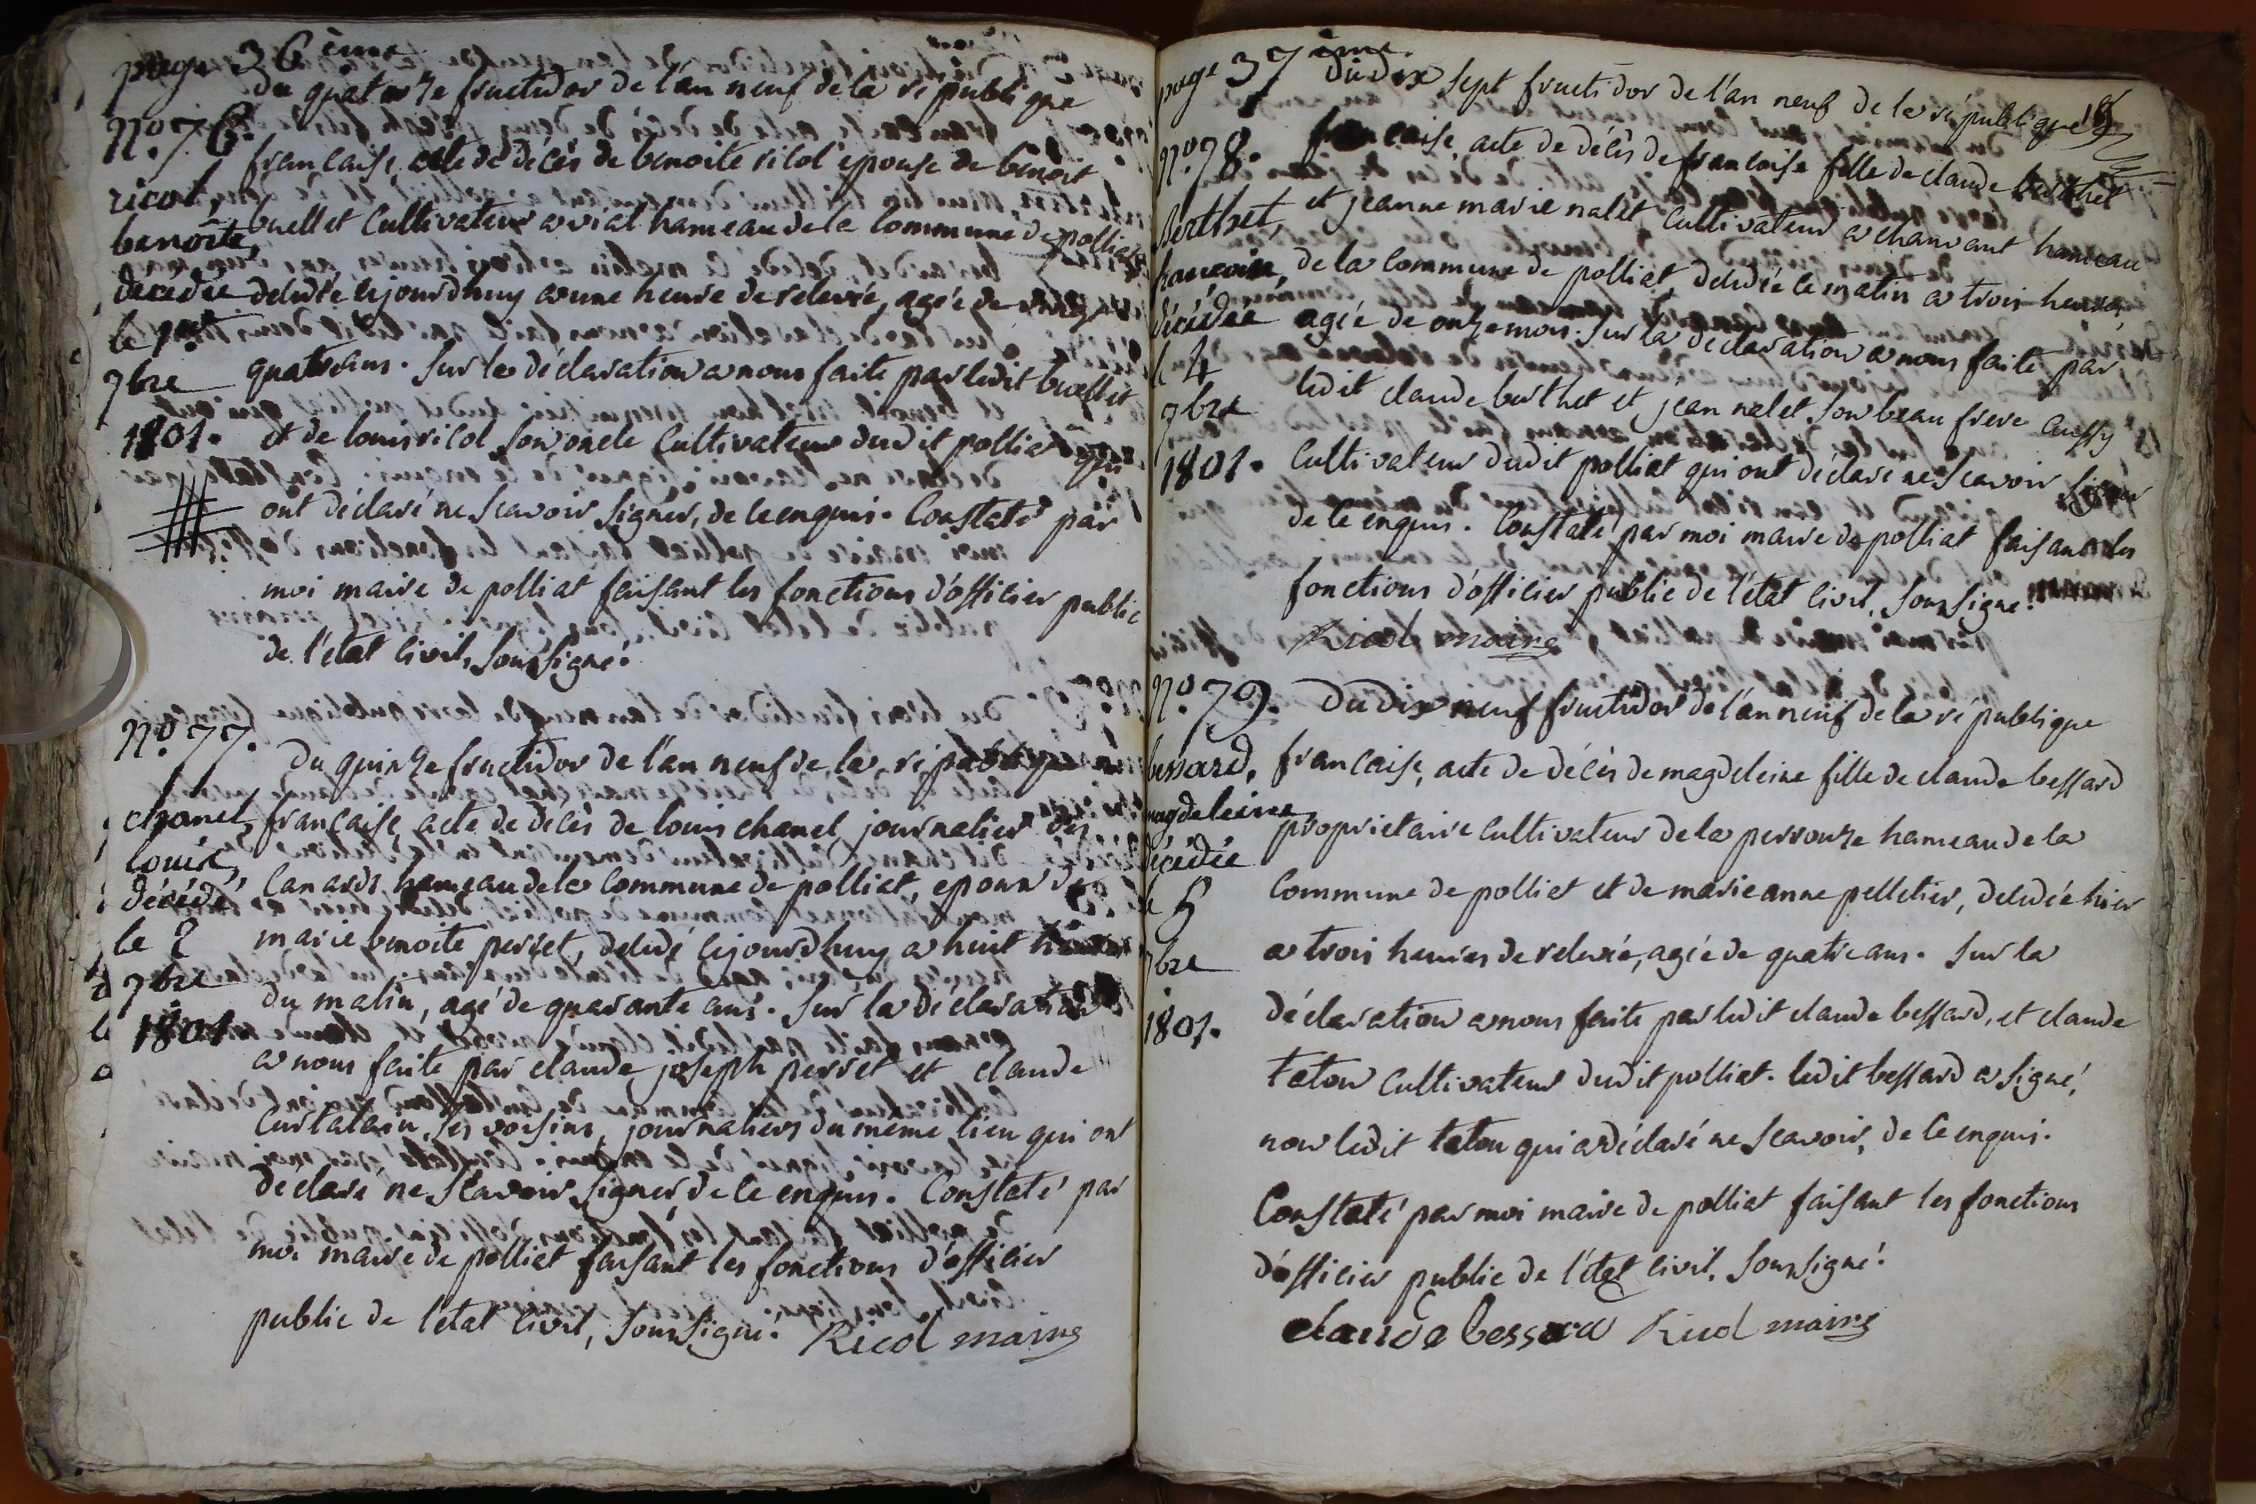 page 36ème
du quatorze fructidor de l'an neuf de la république
n.º 76.
française, acte de décès de benoite ricol épouse de benoit
ricol,
benoîte,
buellet cultivateur a viat hameau de la commune de polliat
décédée
décédée cejourdhuy a une heure de relevée, agée de vingt
le 1er
7bre
quatre ans. Sur la déclaration a nous faite par ledit buellet
1801.
et de louis ricol son oncle cultivateurs dudit polliat qui
ont déclaré ne scavoir signer, de ce enquis. Constaté par
moi maire de polliat faisant les fonctions d'officier public
de l'état civil, soussigné.
n.º 77.
du quinze fructidor de l'an neuf de la république
chanel,
française, acte de décès de louis chanel journalier des
louis,
décédé
canards hameau de la commune de polliat, epoux de
le 2
marie benoite perret, décédé cejourdhuy a huit heures
7bre
du matin, agé de quarante ans. Sur la déclaration
1801
a nous faite par claude joseph perret et claude
curtalain, ses voisins, journaliers du même lieu qui ont
déclaré ne scavoir signer, de ce enquis. Constaté par
moi maire de polliat faisant les fonctions d'officier
public de l'état civil, soussigné. Ricol maire
page 37ème
du dix sept fructidor de l'an neuf de la république
n.º 78.
française, acte de décès de francoise fille de claude berthet
Berthet,
et jeanne marie nalet cultivateur a chanvant hameau
francoise,
de la commune de polliat, décédée ce matin a trois heures,
décédée
agée de onze mois. Sur la déclaration a nous faite par
le 4
7bre
ledit claude berthet et jean nalet son beau frere aussy
1801.
cultivateurs dudit polliat qui ont déclaré ne scavoir signer
de ce enquis. Constaté par moi maire de polliat faisant les
fonctions d'officier public de l'état civil, soussigné.
Ricol maire
n.º 79.
du dix neuf fructidor de l'an neuf de la république
bessard,
française, acte de décès de magdeleine fille de claude bessard
magdeleine
proprietaire cultivateur de la perrouze hameau de la
décédée
commune de polliat et de marie anne pelletier, décédée hier
le 5
7bre
a trois heures de relevée, agée de quatre ans. Sur la
1801.
déclaration a nous faite par ledit claude bessard, et claude
teton cultivateurs dudit polliat. ledit bessard a signé,
non ledit teton qui a déclaré ne scavoir, de ce enquis.
Constaté par moi maire de polliat faisant les fonctions
d'officier public de l'état civil, soussigné.
claude bessard Ricol maire